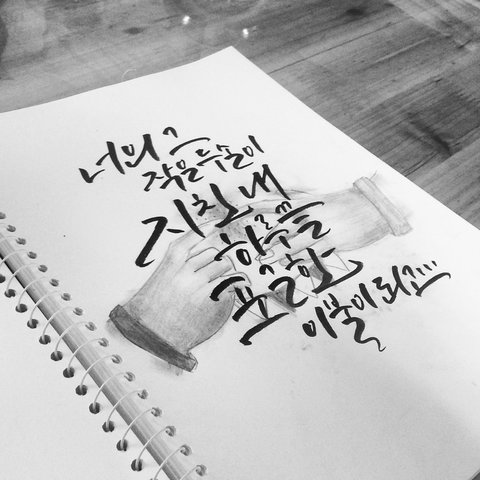 너의
작은 두 손이
지친 내
하루를
포근한
이불이 되고....